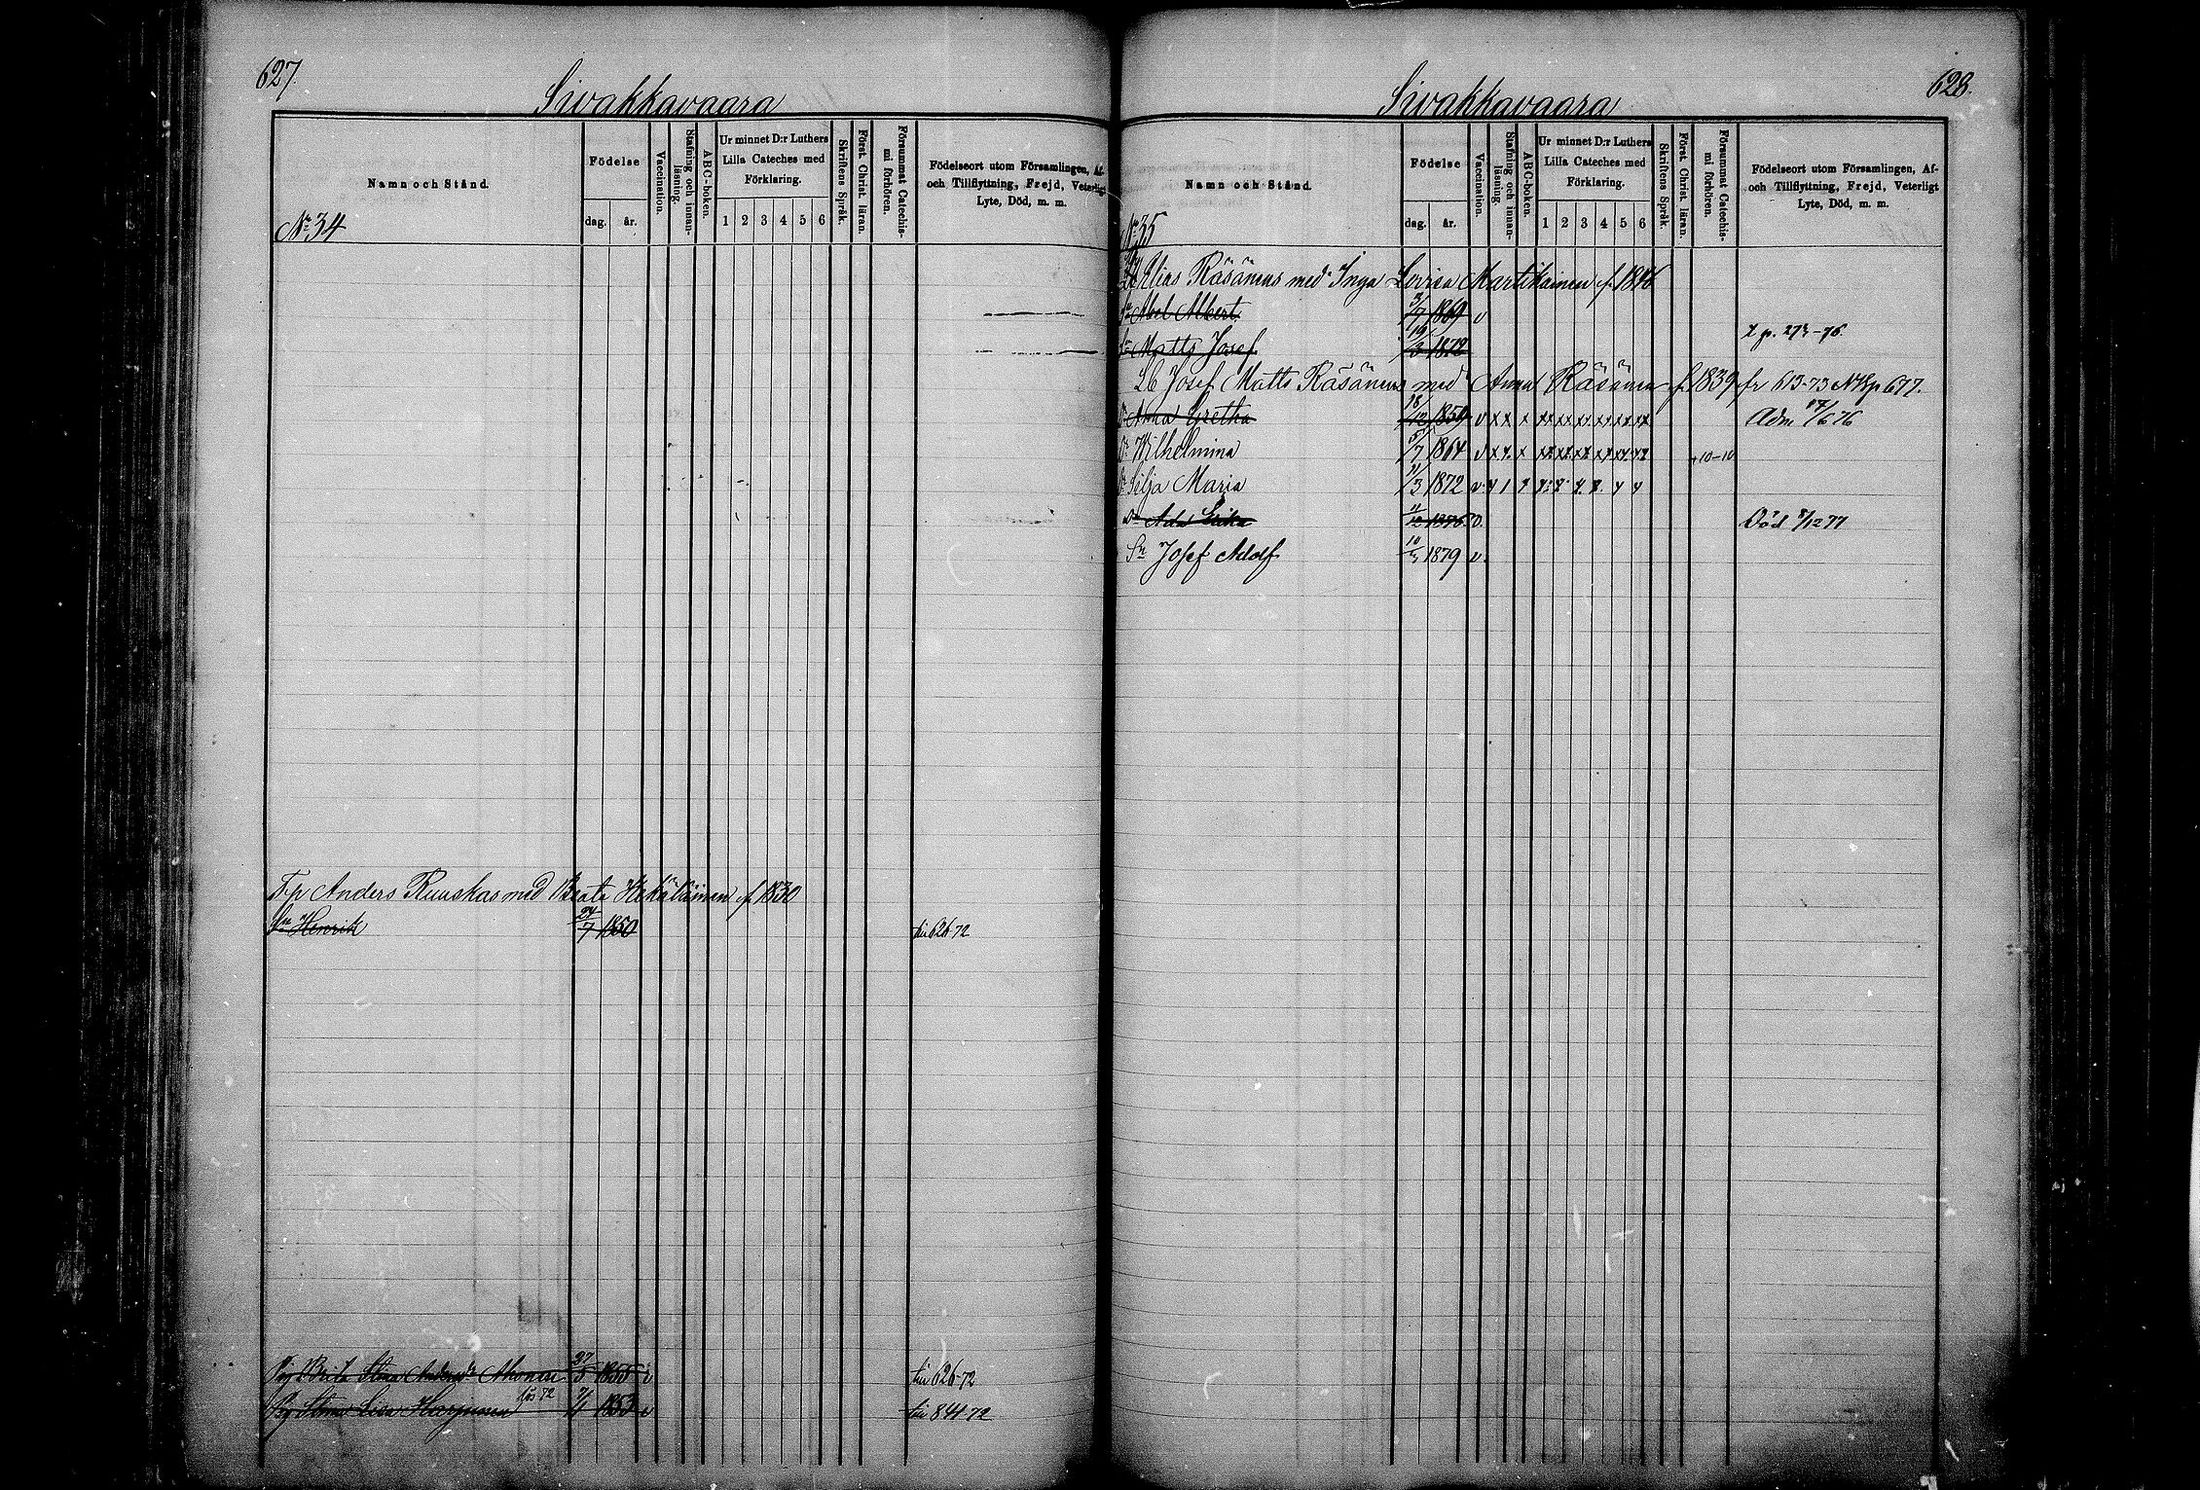 627.
Siwakkavaara
Namn och Stånd.
Födelse
dag. år.
Vaccination.
Stafning och innanläsning.
ABC-boken.
Ur minnet D:r Luthers
Lilla Cateches med
Förklaring.
1 2 3 4 5 6
Skriftens Språk.
Först. Christ. läran.
Försummat Catechismi förhören.
Födelseort utom Församlingen, Af-
och Tillflyttning, Frejd, Veterligt
Lyte, Död, m. m.
No 34
Anders Ruuskas med Beata f. 1830
Sn Henrik 24/7 1850 till 626-72
Brita Stina Ahonen 27/5 1855 v till 626-72
Lisa Harjunen 1853 v till 841 72
Siwakkavaara
628.
Namn och Stånd.
Födelse
dag. år.
Vaccination.
Stafning och innanläsning.
ABC-boken.
Ur minnet D:r Luthers
Lilla Cateches med
Förklaring.
1 2 3 4 5 6
Skriftens Språk.
Först. Christ. läran.
Försummat Catechismi förhören.
Födelseort utom Församlingen, Af-
och Tillflyttning, Frejd, Veterligt
Lyte, Död, m. m.
No 35
Elias Räsänens med Inga Lovisa Martikainen f. 1846
Sn Abel Albert 3/7 1869 v
Sn Matts Josef 19/3 1872
Lb Josef Matts Räsänens med Anna Räsänen f. 1839 fr 613-73 p 677.
Dr Anna Gretha 18/12 1850 v x x x xx xx xx xx xx xx Adm 17/6 76
Dr Wilhelmina 5/7 1864 v x x x xx xx xx xx xx xx 10-10
Dr Silja Maria 11/3 1872 v
Dr Ada Erika 11/12 1876 v. Död 8/12 77
Sn Josef Adolf 10/3 1879 v.